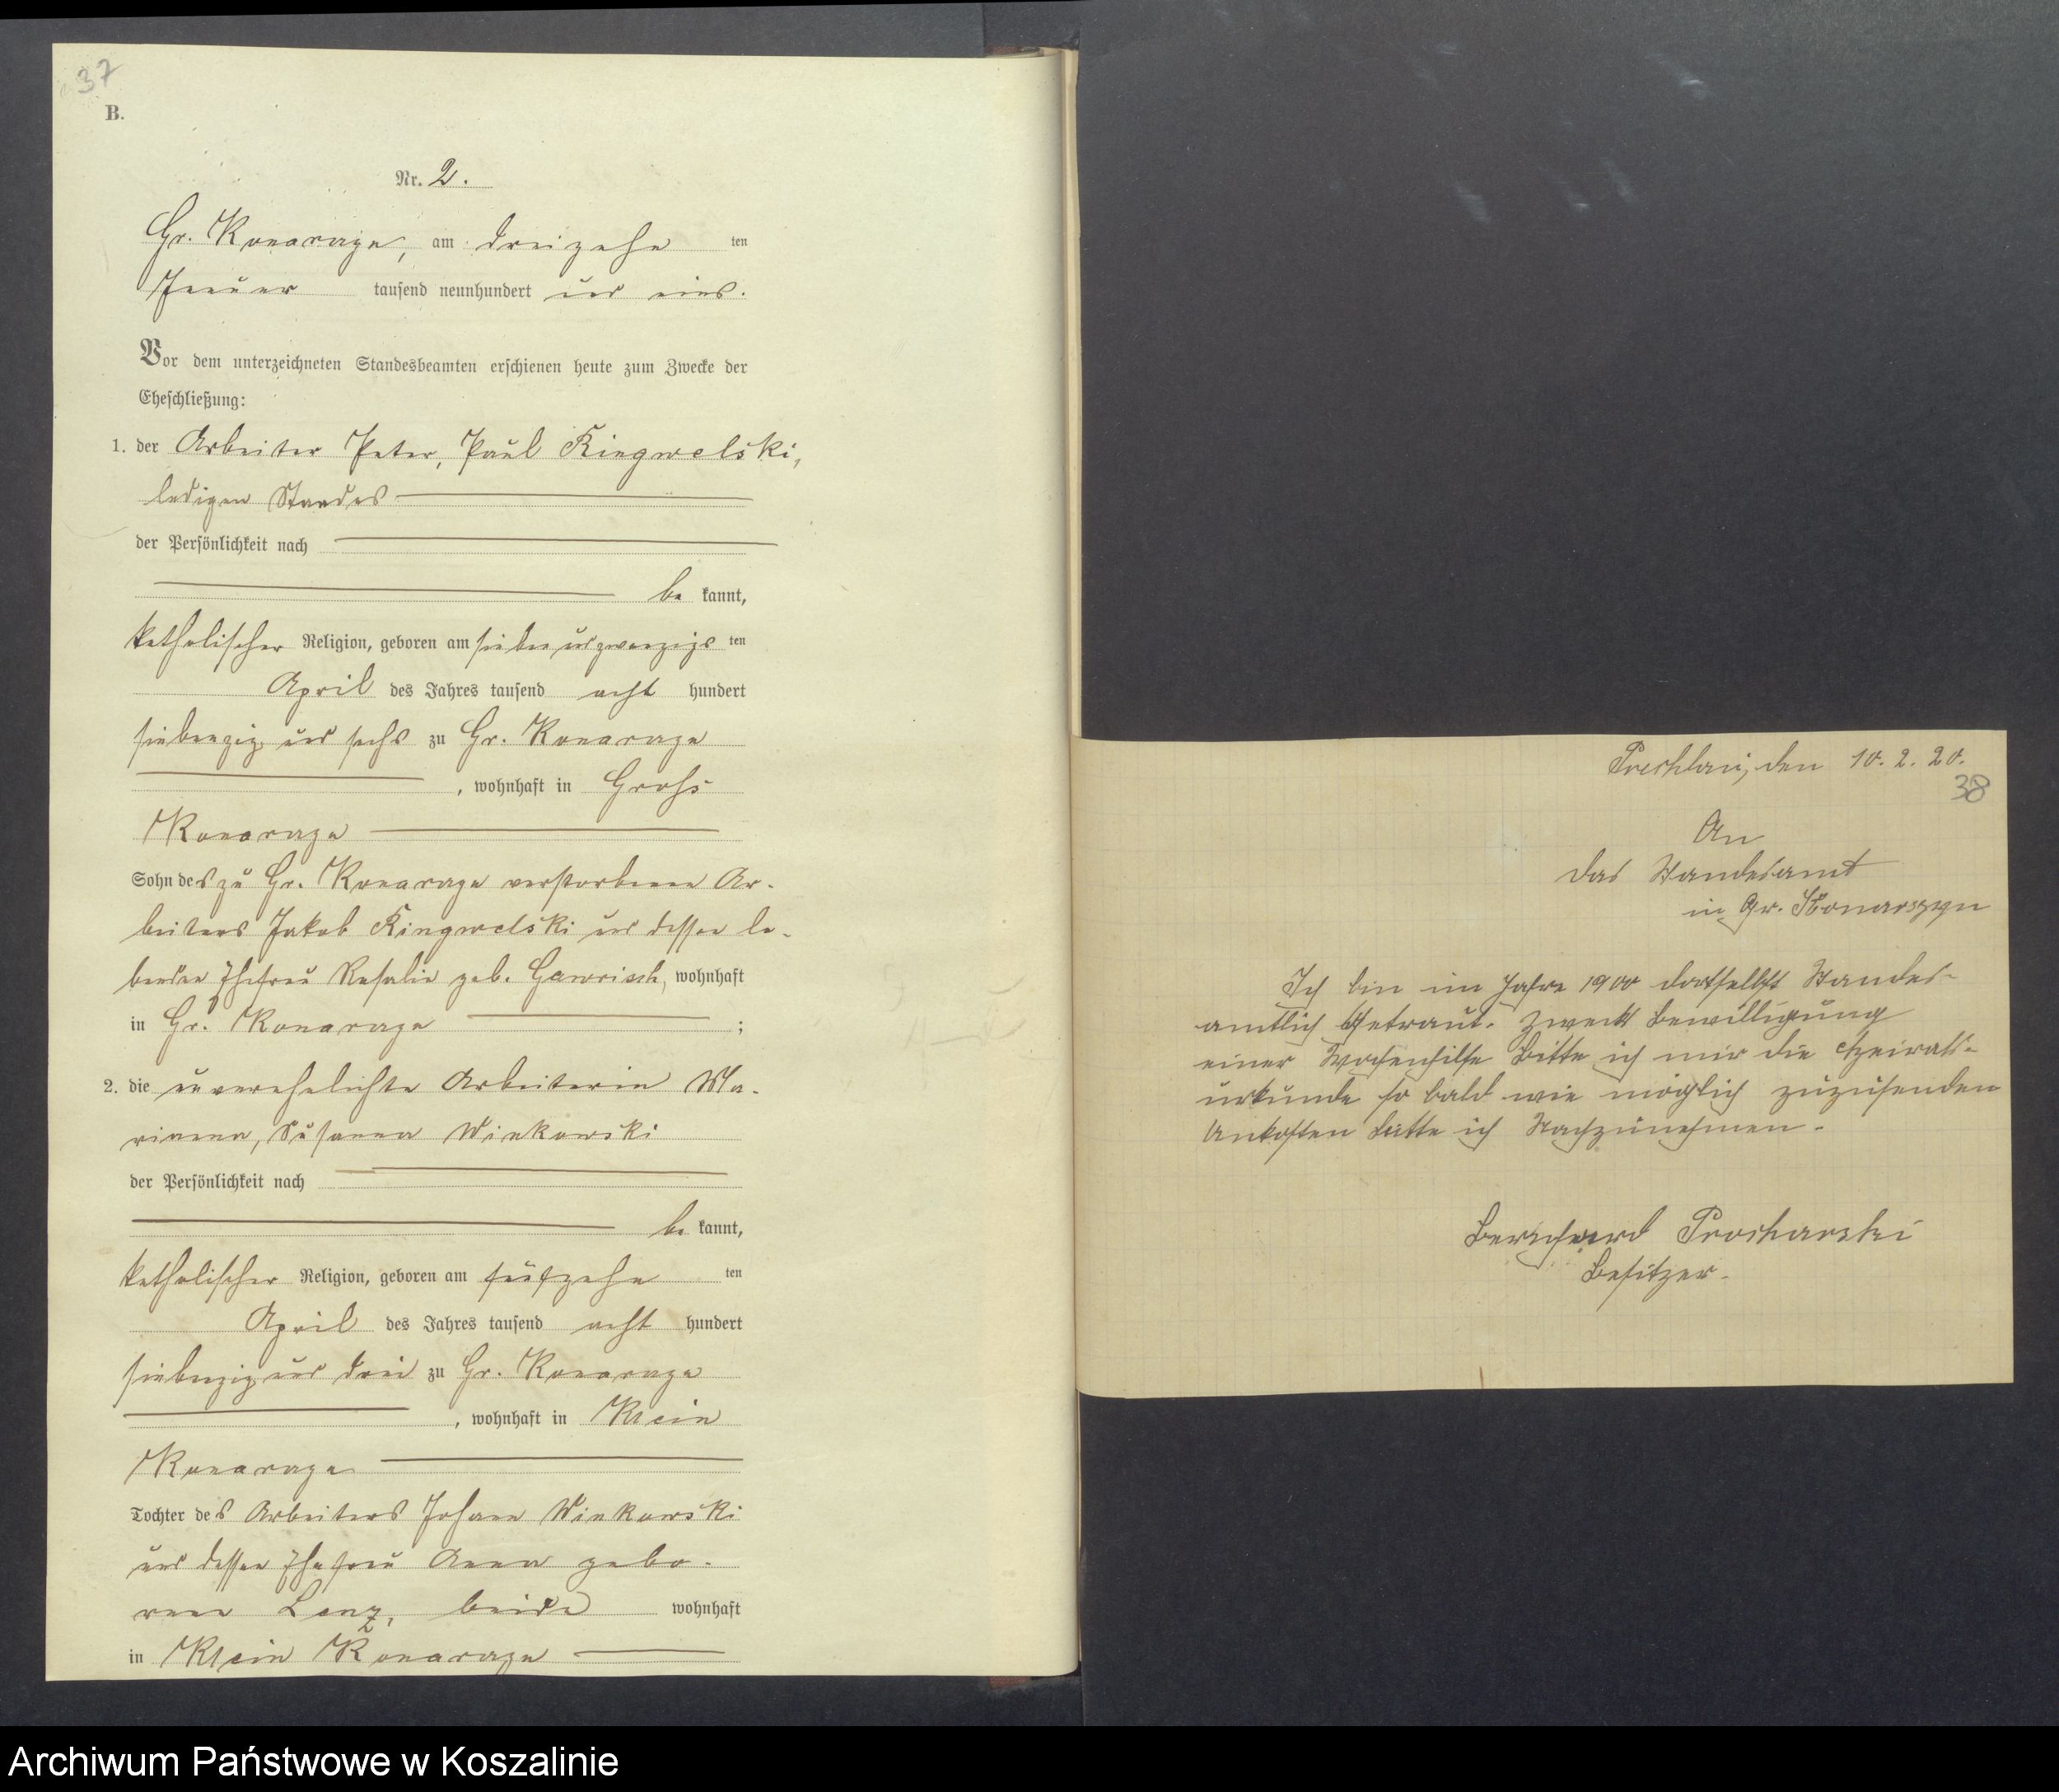 37
B.
Nr. 2.
Gr. Konarczyn, am dreizehn ten
Januar tausend neunhundert und eins.
Vor dem unterzeichneten Standesbeamten erschienen heute zum Zwecke der
Eheschließung:
1. der Arbeiter Peter, Paul Kingwelski,
ledigen Standes
der Persönlichkeit nach
be kannt,
katholischer Religion, geboren am sieben und zwanzigs ten
April des Jahres tausend acht hundert
siebenzig und sechs zu Gr. Konarczyn
, wohnhaft in Groß
Konarczyn
Sohn des zu Gr. Konarczyn verstorbenen Ar-
beiters Jakob Kingwelski und dessen le-
benden Ehefrau Rosalie geb. Gawrisch, wohnhaft
in Gr. Konarczyn ;
2. die unverehelichte Arbeiterin Ma-
rianna, Susanna Winkowski
der Persönlichkeit nach
be kannt,
katholischer Religion, geboren am fünfzehn ten
April des Jahres tausend acht hundert
siebenzig und drei zu Gr. Konarczyn
, wohnhaft in Klein
Konarczyn
Tochter des Arbeiters Johann Winkowski
und dessen Ehefrau Anna gebo-
rene Lenz, beide wohnhaft
in Klein Konarczyn
Prechlau, den 10. 2. 20.
38
An
das Standesamt
in Gr. Konarszyn
Ich bin im Jahre 1900 dortselbst Standes-
amtlich Getraut. Zweck Bewilligung
einer Wochenhilfe Bitte ich mir die Heirats-
urkunde so bald wie möglich zuzusenden
Unkosten bitte ich Nachzunehmen.
Bernhard Prosharski
Besitzer.
Archiwum Państwowe w Koszalinie